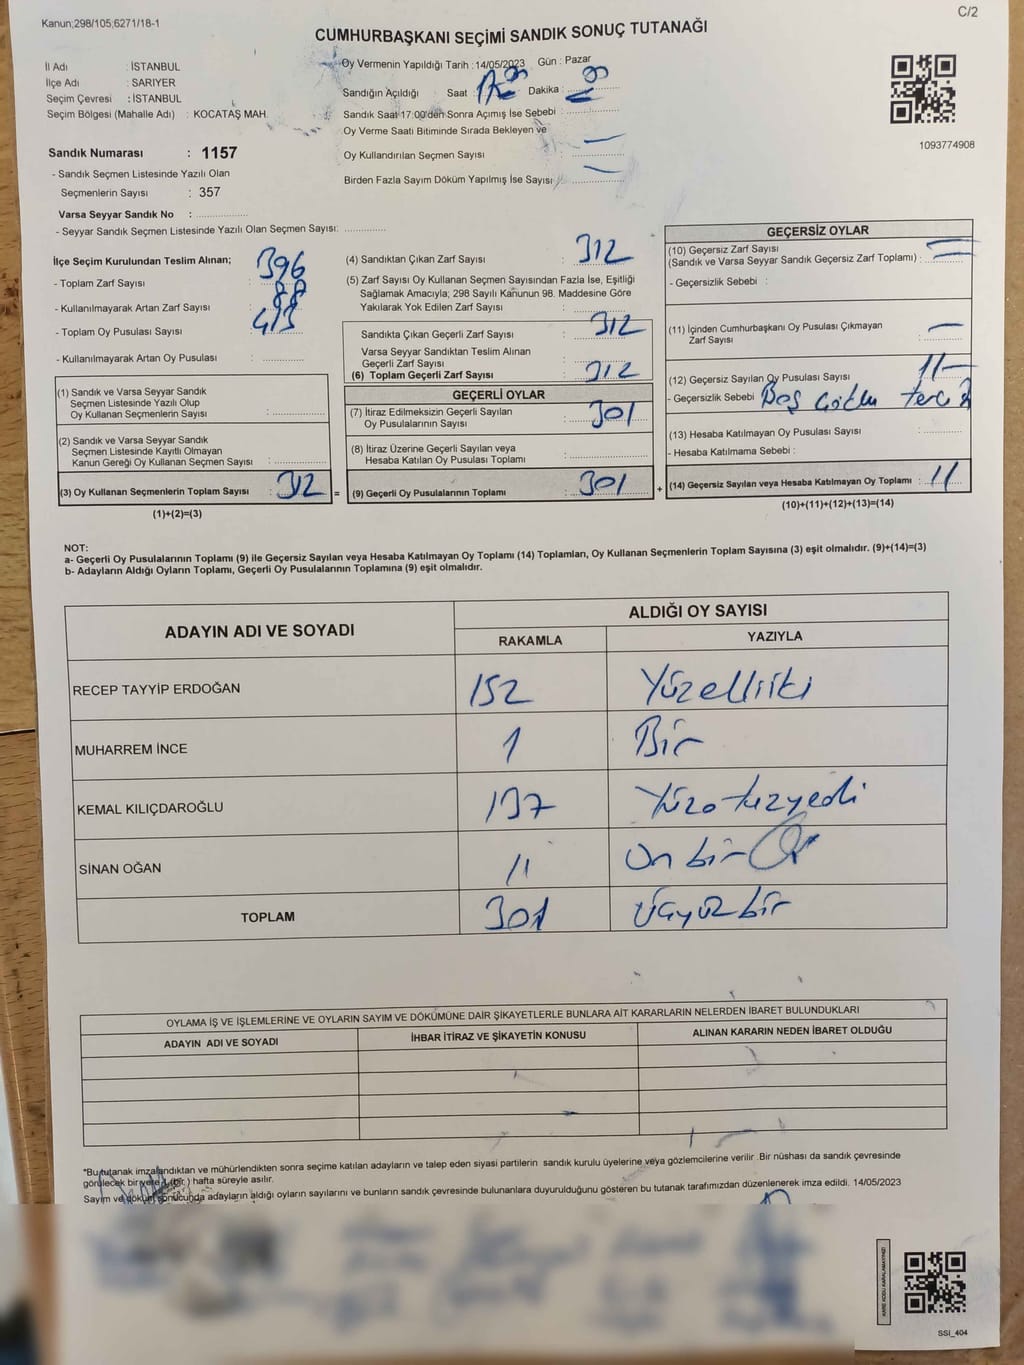 Kanun;298/105;6271/18-1
C/2
CUMHURBAŞKANI SEÇİMİ SANDIK SONUÇ TUTANAĞI
İl Adı : İSTANBUL
İlçe Adı : SARIYER
Seçim Çevresi : İSTANBUL
Seçim Bölgesi (Mahalle Adı) : KOCATAŞ MAH.
Sandık Numarası : 1157
- Sandık Seçmen Listesinde Yazılı Olan
Seçmenlerin Sayısı : 357
Varsa Seyyar Sandık No : ..................
- Seyyar Sandık Seçmen Listesinde Yazılı Olan Seçmen Sayısı: ..............
Oy Vermenin Yapıldığı Tarih : 14/05/2023 Gün : Pazar
Sandığın Açıldığı Saat : Dakika :
Sandık Saat 17:00'den Sonra Açımış İse Sebebi :
Oy Verme Saati Bitiminde Sırada Bekleyen ve
Oy Kullandırılan Seçmen Sayısı
Birden Fazla Sayım Döküm Yapılmış İse Sayısı
1093774908
İlçe Seçim Kurulundan Teslim Alınan;
- Toplam Zarf Sayısı : 396
- Kullanılmayarak Artan Zarf Sayısı : 88
- Toplam Oy Pusulası Sayısı :
- Kullanılmayarak Artan Oy Pusulası :
(1) Sandık ve Varsa Seyyar Sandık
Seçmen Listesinde Yazılı Olup
Oy Kullanan Seçmenlerin Sayısı :
(2) Sandık ve Varsa Seyyar Sandık
Seçmen Listesinde Kayıtlı Olmayan
Kanun Gereği Oy Kullanan Seçmen Sayısı :
(3) Oy Kullanan Seçmenlerin Toplam Sayısı : 312 =
(1)+(2)=(3)
(4) Sandıktan Çıkan Zarf Sayısı : 312
(5) Zarf Sayısı Oy Kullanan Seçmen Sayısından Fazla İse, Eşitliği
Sağlamak Amacıyla; 298 Sayılı Kanunun 98. Maddesine Göre
Yakılarak Yok Edilen Zarf Sayısı :
Sandıkta Çıkan Geçerli Zarf Sayısı : 312
Varsa Seyyar Sandıktan Teslim Alınan
Geçerli Zarf Sayısı :
(6) Toplam Geçerli Zarf Sayısı : 312
GEÇERLİ OYLAR
(7) İtiraz Edilmeksizin Geçerli Sayılan
Oy Pusulalarının Sayısı : 301
(8) İtiraz Üzerine Geçerli Sayılan veya
Hesaba Katılan Oy Pusulası Toplamı :
(9) Geçerli Oy Pusulalarının Toplamı : 301 +
GEÇERSİZ OYLAR
(10) Geçersiz Zarf Sayısı
(Sandık ve Varsa Seyyar Sandık Geçersiz Zarf Toplamı) :
- Geçersizlik Sebebi :
(11) İçinden Cumhurbaşkanı Oy Pusulası Çıkmayan
Zarf Sayısı :
(12) Geçersiz Sayılan Oy Pusulası Sayısı : 11
- Geçersizlik Sebebi : Boş
(13) Hesaba Katılmayan Oy Pusulası Sayısı :
- Hesaba Katılmama Sebebi :
(14) Geçersiz Sayılan veya Hesaba Katılmayan Oy Toplamı : 11
(10)+(11)+(12)+(13)=(14)
NOT:
a- Geçerli Oy Pusulalarının Toplamı (9) ile Geçersiz Sayılan veya Hesaba Katılmayan Oy Toplamı (14) Toplamları, Oy Kullanan Seçmenlerin Toplam Sayısına (3) eşit olmalıdır. (9)+(14)=(3)
b- Adayların Aldığı Oyların Toplamı, Geçerli Oy Pusulalarının Toplamına (9) eşit olmalıdır.
ADAYIN ADI VE SOYADI
ALDIĞI OY SAYISI
RAKAMLA YAZIYLA
RECEP TAYYİP ERDOĞAN 152 Yüzelliiki
MUHARREM İNCE 1 Bir
KEMAL KILIÇDAROĞLU 137 Yüzotuzyedi
SİNAN OĞAN 11 On bir
TOPLAM 301 Üçyüzbir
OYLAMA İŞ VE İŞLEMLERİNE VE OYLARIN SAYIM VE DÖKÜMÜNE DAİR ŞİKAYETLERLE BUNLARA AİT KARARLARIN NELERDEN İBARET BULUNDUKLARI
ADAYIN ADI VE SOYADI İHBAR İTİRAZ VE ŞİKAYETİN KONUSU ALINAN KARARIN NEDEN İBARET OLDUĞU
*Bu tutanak imzalandıktan ve mühürlendikten sonra seçime katılan adayların ve talep eden siyasi partilerin sandık kurulu üyelerine veya gözlemcilerine verilir. Bir nüshası da sandık çevresinde
görülecek bir yere 1 (bir ) hafta süreyle asılır.
Sayım ve döküm sonucunda adayların aldığı oyların sayılarını ve bunların sandık çevresinde bulunanlara duyurulduğunu gösteren bu tutanak tarafımızdan düzenlenerek imza edildi. 14/05/2023
KARE KODU KARALAMAYINIZ!
SSI_404